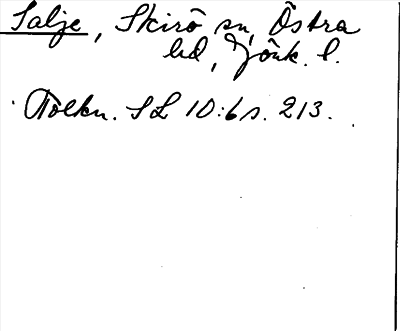 Salje, Skirö sn, Östra
hd, Jönk. l.
Tolkn. SL 10:6 s. 213.